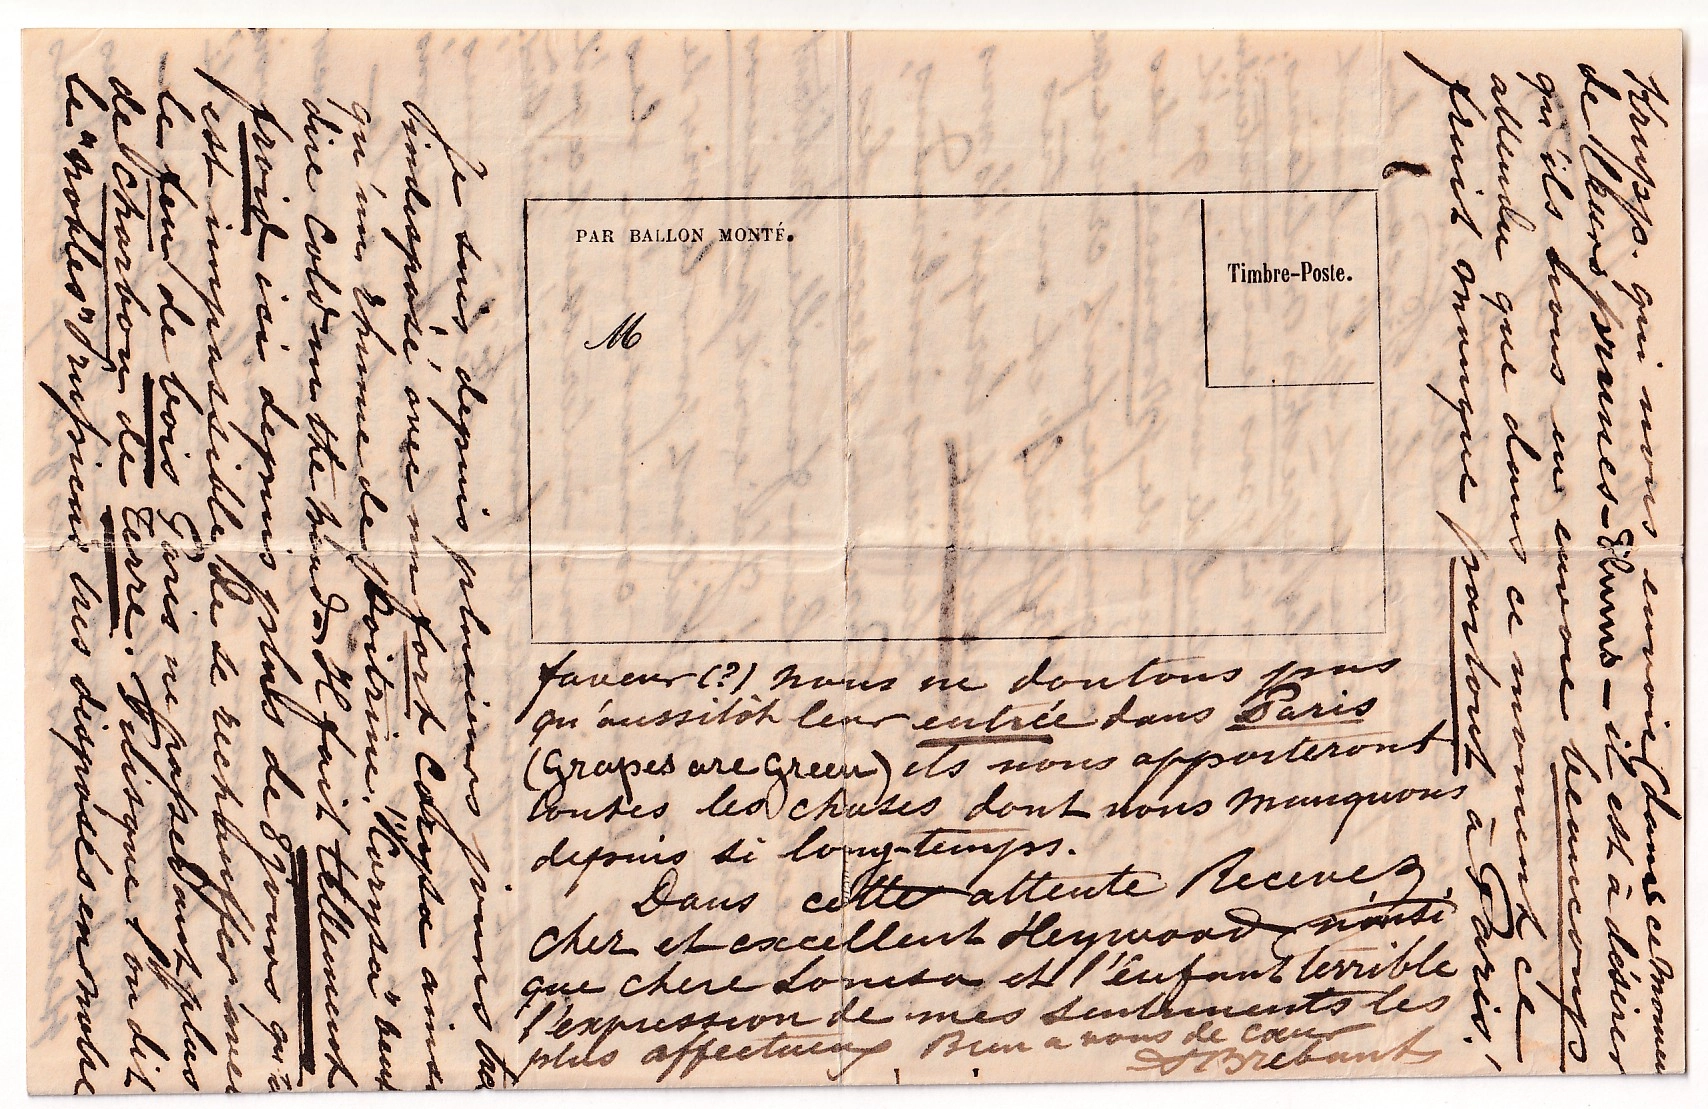 Krupp. qui nous envoie (dans ce momen
de leurs prunes - Plums - il est à désirer
qu'ils nous en envoie beaucoup
attendu que dans ce moment ce
fruit manque partout à Paris!
Je suis depuis plusieurs jours
indisposé avec un fort Coryza ainsi
qu'un rhume de poitrine. "Coryza" veut
dire Cold in the head. Il fait tellement
froid ici depuis plus de 8 jours qu'i
est impossible de se rechauffer avec
le feu de bois Paris ne possedant plus
de charbon de terre. Puisque l'on dit
les "nobles" Prussiens tres disposés en notre
PAR BALLON MONTÉ.
Timbre-Poste.
M
faveur (?) nous ne doutons pas
qu'aussitôt leur entrée dans Paris
(Grapes are Green) ils nous apporteront
toutes les choses dont nous manquons
depuis si long-temps.
Dans cette attente Recevez
cher et excellent Heywood, ainsi
que chere Louisa et l'enfant terrible
l'expression de mes sentiments les
plus affectueux Bien a vous de cœur
Brebant